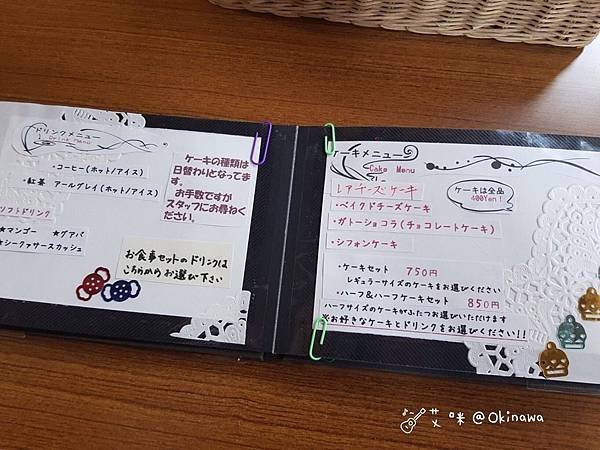 ドリンクメニュー
Drink menu
・コーヒー(ホット/アイス)
・紅茶 アールグレイ(ホット/アイス)
ソフトドリンク
★マンゴー ★グアバ
★シークァサースカッシュ
ケーキの種類は
日替わりとなってます。
お手数ですが
スタッフにお尋ねください。
お食事セットのドリンクは
こちらからお選び下さい
ケーキメニュー
Cake Menu
レアチーズケーキ
ケーキは全品
400Yen!
・ベイクドチーズケーキ
・ガトーショコラ(チョコレートケーキ)
・シフォンケーキ
・ケーキセット 750円
レギュラーサイズのケーキをお選びください
・ハーフ&ハーフケーキセット 850円
ハーフサイズのケーキがふたつお選びいただけます
※お好きなケーキとドリンクをお選びください!!
艾咪@Okinawa